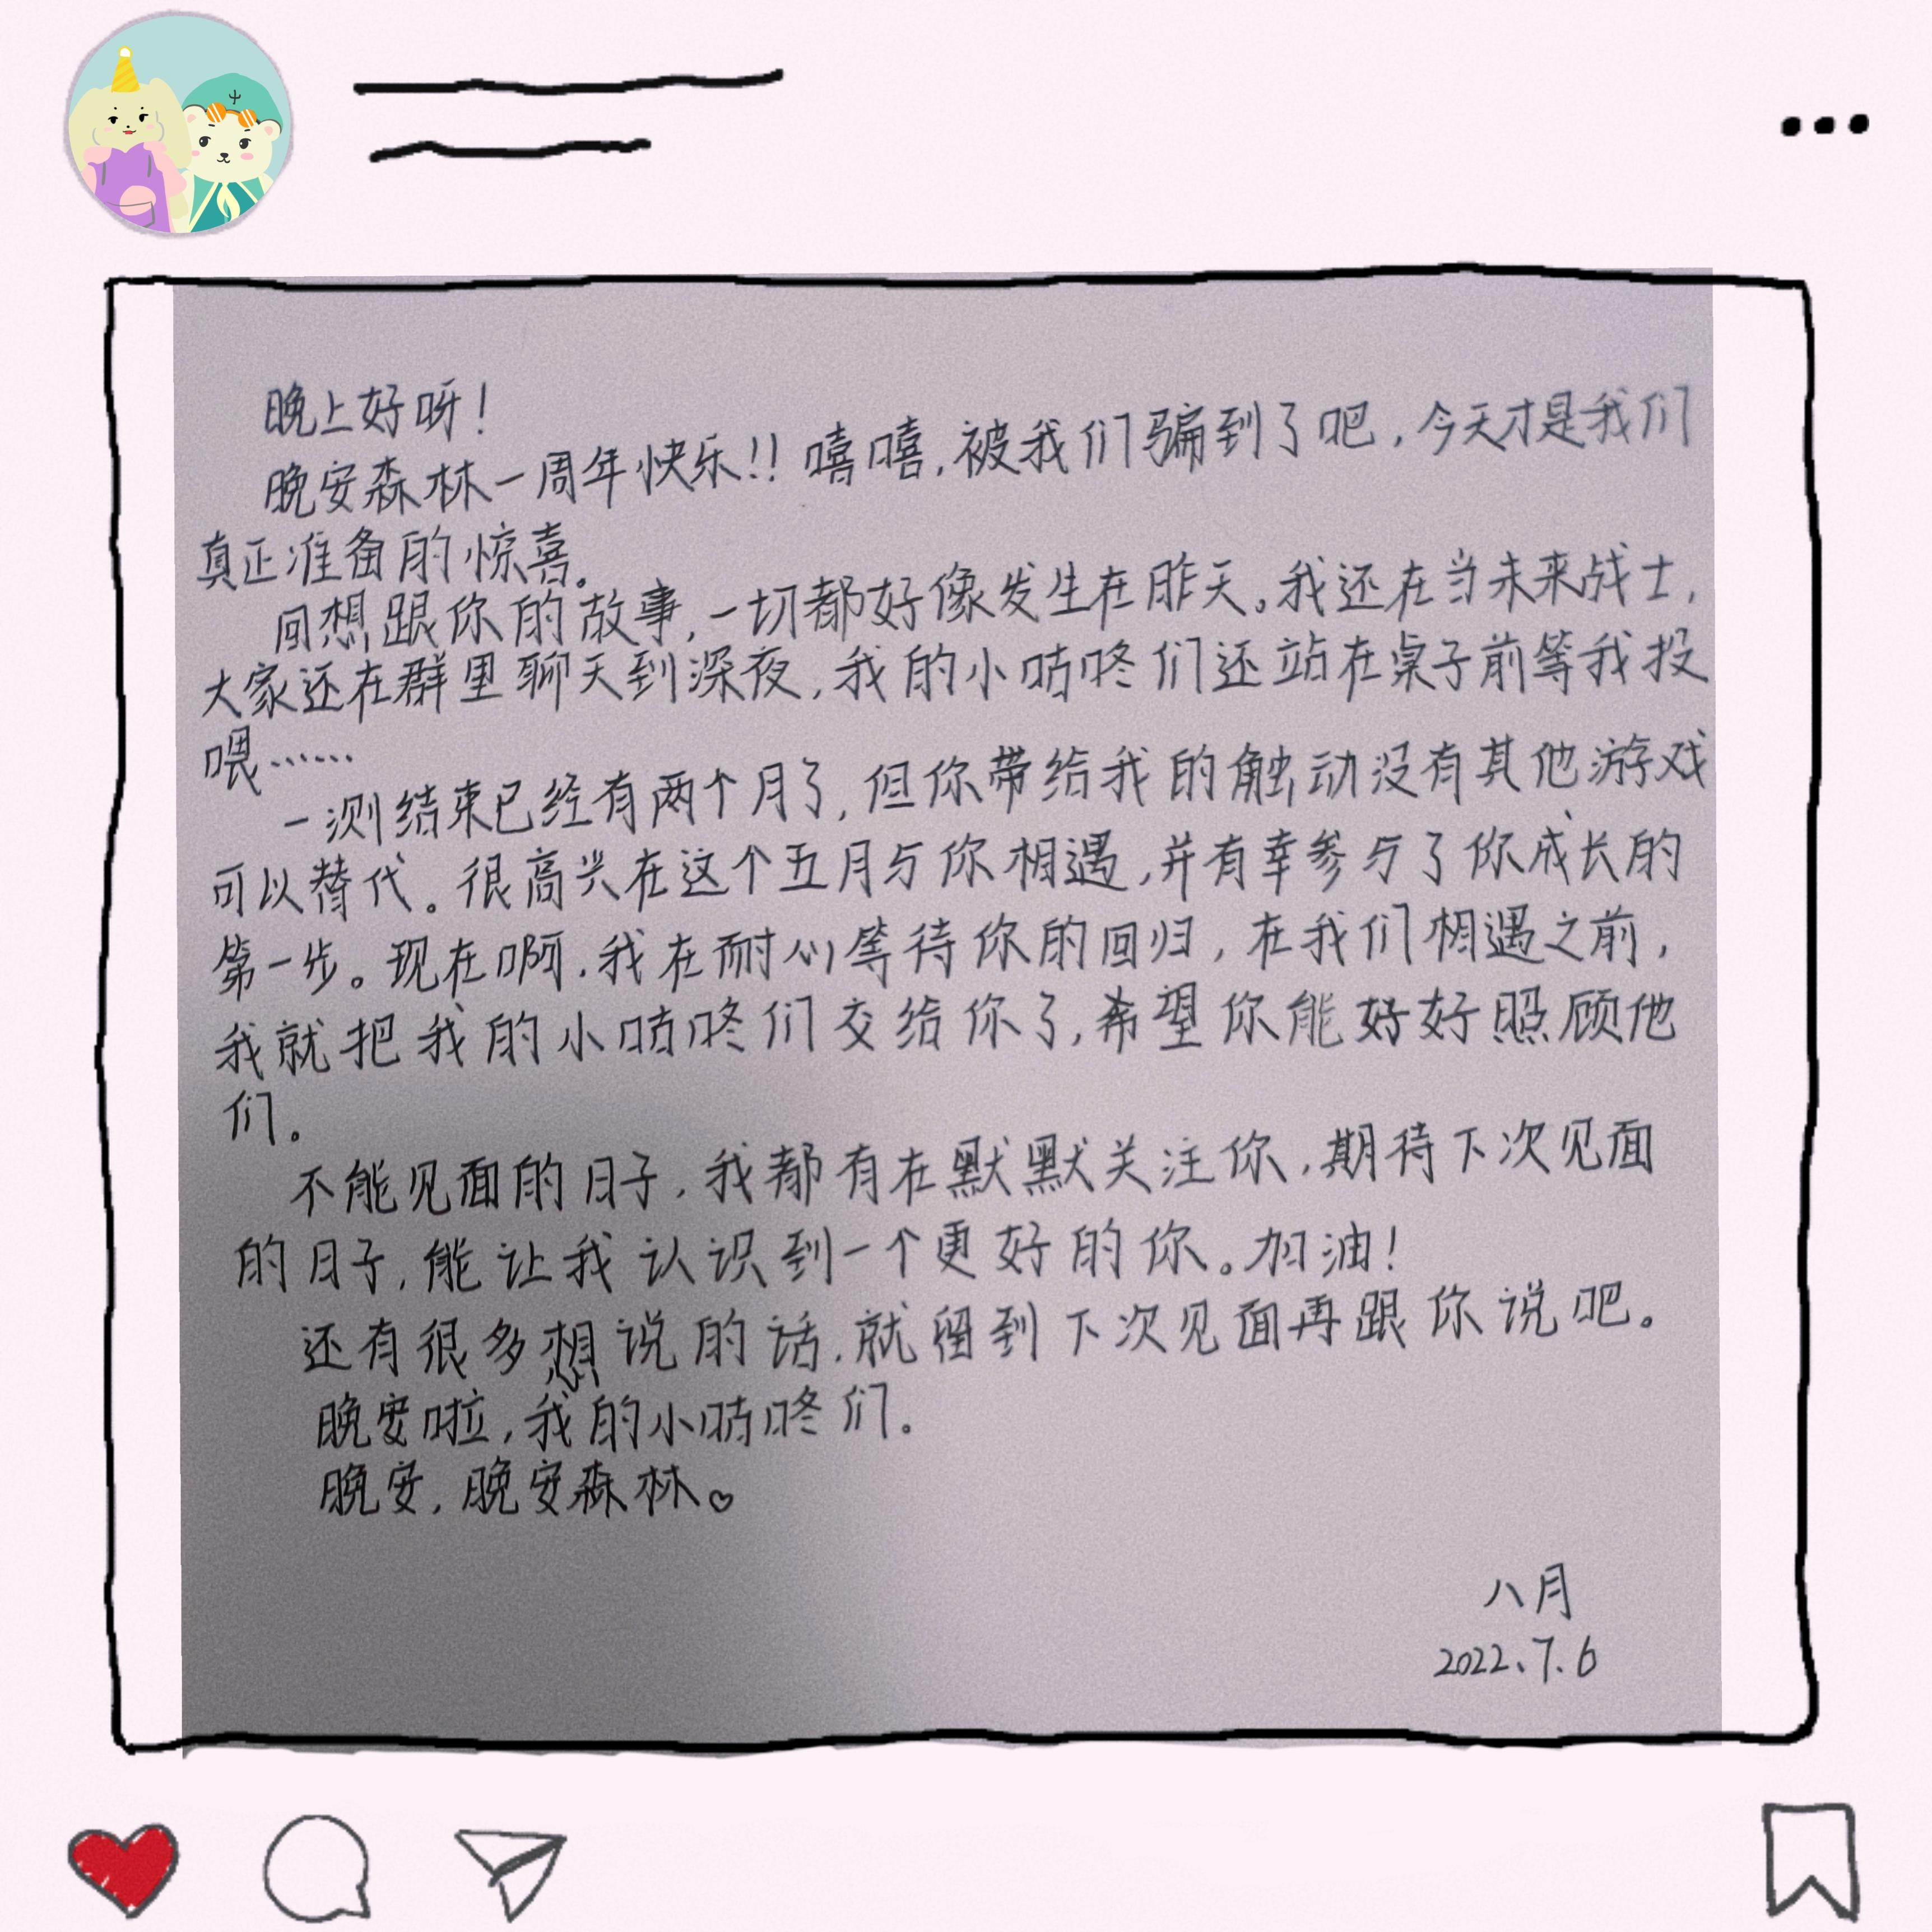 晚上好呀！
晚安森林一周年快乐!! 嘻嘻，被我们骗到了吧，今天才是我们
真正准备的惊喜。
回想跟你的故事，一切都好像发生在昨天。我还在当未来战士，
大家还在群里聊天到深夜，我的小咕咚们还站在桌子前等我投
喂……
一测结束已经有两个月了，但你带给我的触动没有其他游戏
可以替代。很高兴在这个五月与你相遇，并有幸参与了你成长的
第一步。现在啊，我在耐心等待你的回归，在我们相遇之前，
我就把我的小咕咚们交给你了，希望你能好好照顾他
们。
不能见面的日子，我都有在默默关注你，期待下次见面
的日子，能让我认识到一个更好的你。加油！
还有很多想说的话，就留到下次见面再跟你说吧。
晚安啦，我的小咕咚们。
晚安，晚安森林。♡
八月
2022.7.6